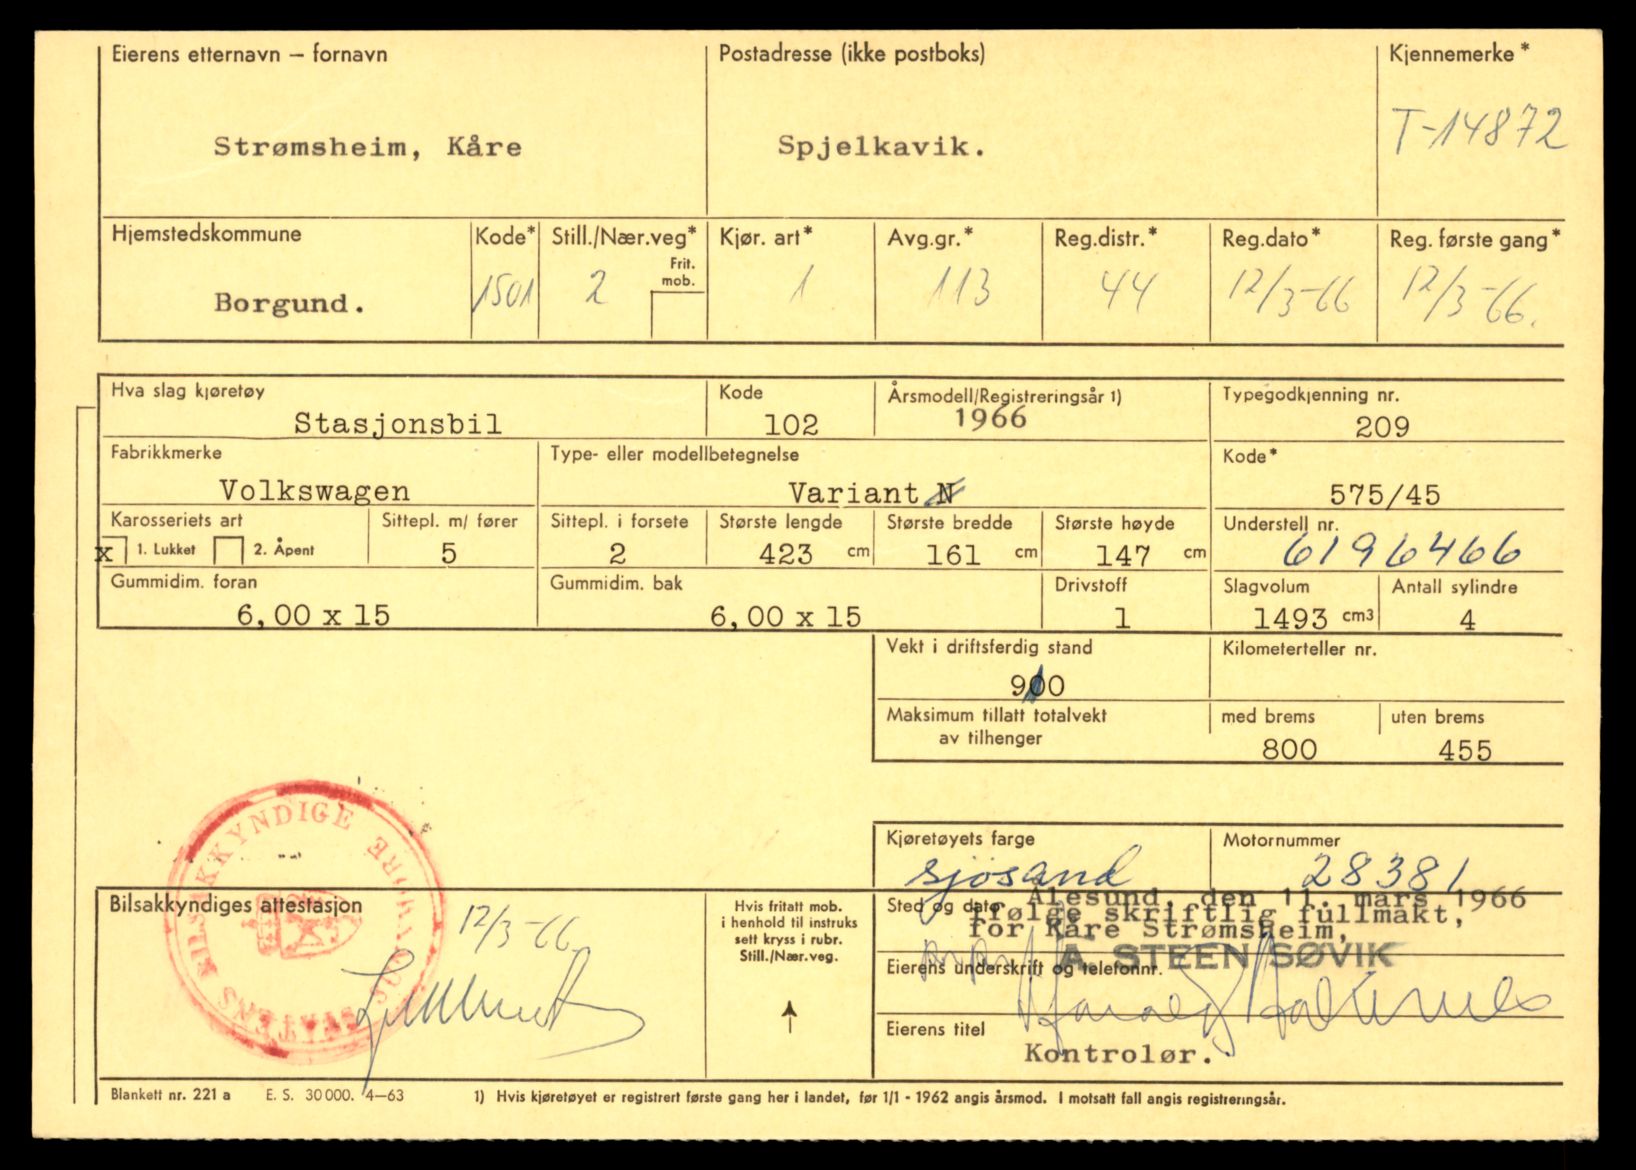 Eierens etternavn – fornavn
Postadresse (ikke postboks)
Kjennemerke*
Strømsheim, Kåre
Spjelkavik.
T-14872
Hjemstedskommune
Kode*
Still./Nær.veg*
Kjør. art*
Avg.gr.*
Reg.distr.*
Reg.dato*
Reg. første gang*
Frit.
mob.
Borgund.
1501
2
1
113
44
12/3-66
12/3-66.
Hva slag kjøretøy
Kode
Årsmodell/Registreringsår 1)
Typegodkjenning nr.
Stasjonsbil
102
1966
209
Fabrikkmerke
Type- eller modellbetegnelse
Kode*
Volkswagen
Variant N
575/45
Karosseriets art
Sittepl. m/ fører
Sittepl. i forsete
Største lengde
Største bredde
Største høyde
Understell nr.
x 1. Lukket
2. Åpent
5
2
423 cm
161 cm
147 cm
6196466
Gummidim. foran
Gummidim. bak
Drivstoff
Slagvolum
Antall sylindre
6,00 x 15
6,00 x 15
1
1493 cm3
4
Vekt i driftsferdig stand
Kilometerteller nr.
910
Maksimum tillatt totalvekt
av tilhenger
med brems
uten brems
800
455
Kjøretøyets farge
Motornummer
sjøsand
28381
STATENS BILSAKKYNDIGE MØRE
Bilsakkyndiges attestasjon
12/3-66
Hvis fritatt mob.
i henhold til instruks
sett kryss i rubr.
Still./Nær.veg.
Sted og dato
Ålesund, den 11. mars 1966
ifølge skriftlig fullmakt,
for Kåre Strømsheim,
A. STEEN SØVIK
Eierens underskrift og telefonnr.
Eierens titel
Kontrolør.
Blankett nr. 221 a E. S. 30 000. 4–63
1) Hvis kjøretøyet er registrert første gang her i landet, før 1/1 - 1962 angis årsmod. I motsatt fall angis registreringsår.